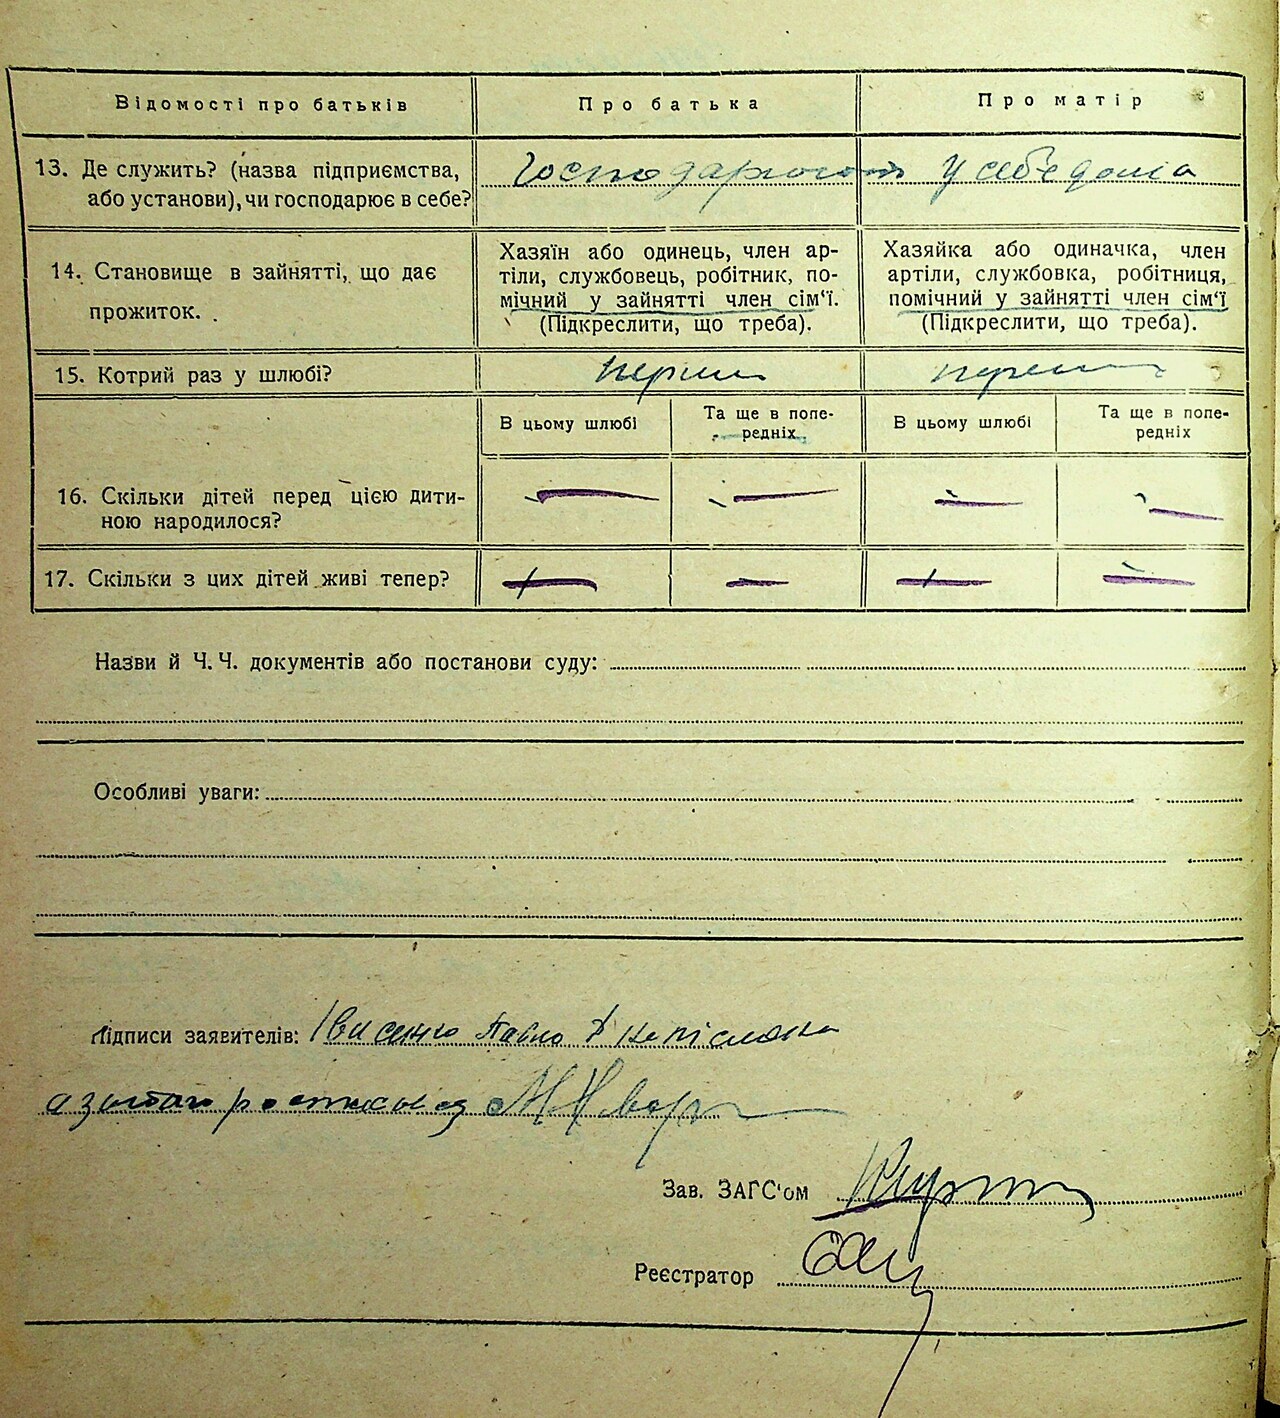 Відомості про батьків
Про батька
Про матір
13. Де служить? (назва підприємства,
або установи), чи господарює в себе?
Господарюють у себе дома
14. Становище в зайнятті, що дає
прожиток.
Хазяїн або одинець, член ар-
тіли, службовець, робітник, по-
мічний у зайнятті член сім‘ї.
(Підкреслити, що треба).
Хазяйка або одиначка, член
артіли, службовка, робітниця,
помічний у зайнятті член сім‘ї
(Підкреслити, що треба).
15. Котрий раз у шлюбі?
В цьому шлюбі
Та ще в попе-
редніх
В цьому шлюбі
Та ще в попе-
редніх
16. Скільки дітей перед цією дити-
ною народилося?
— — — —
17. Скільки з цих дітей живі тепер?
— — — —
Назви й Ч. Ч. документів або постанови суду:
Особливі уваги:
Підписи заявителів: Павло
Зав. ЗАГС‘ом
Реєстратор